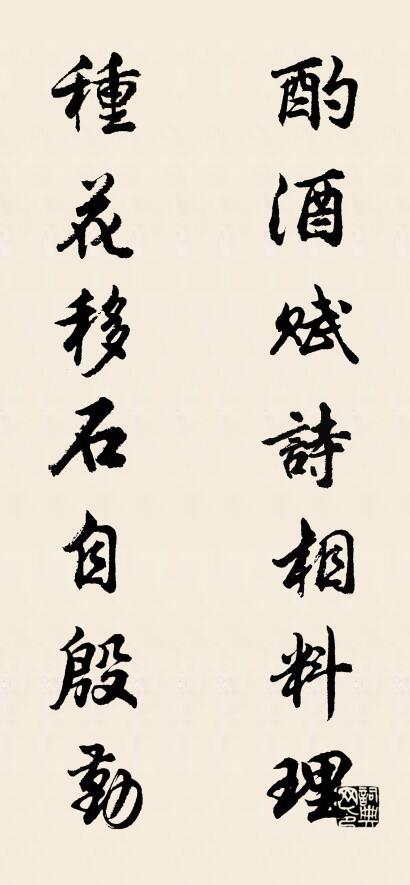 酌酒賦詩相料理
種花移石自殷勤